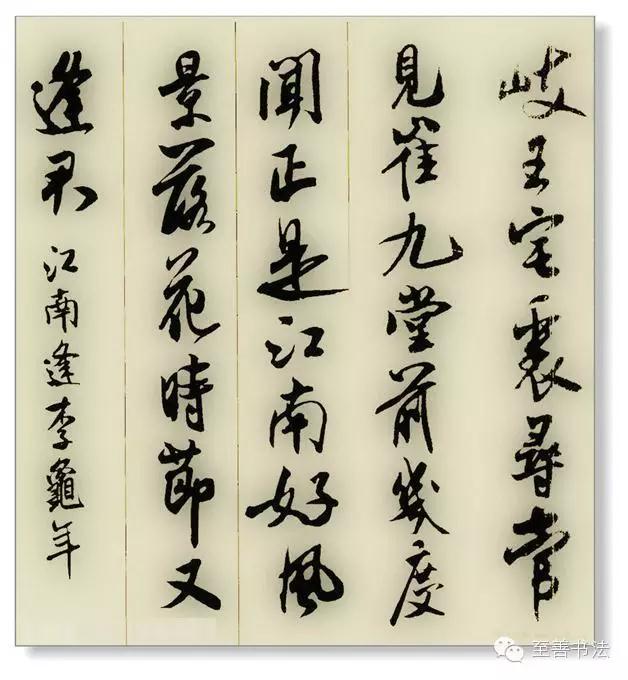 岐王宅裏尋常
見崔九堂前幾度
聞正是江南好風
景落花時節又
逢君 江南逢李龜年
至善书法